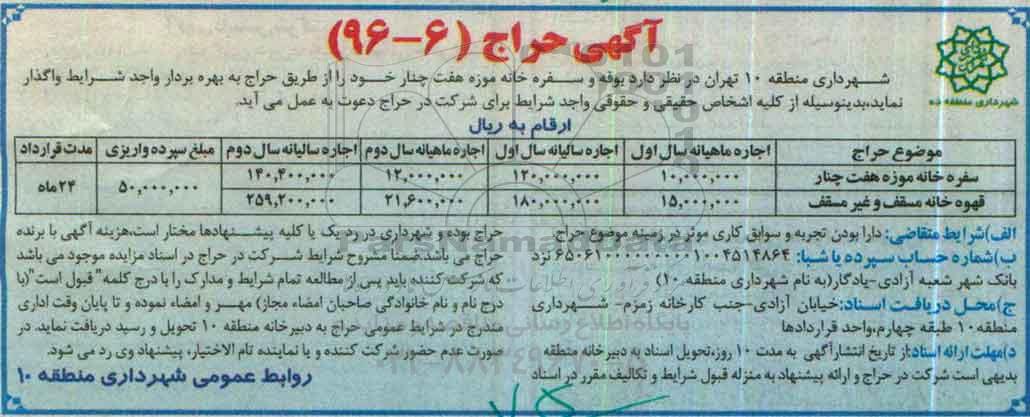 آگهی حراج (۶-۹۶)
شهرداری منطقه ۱۰ تهران در نظر دارد بوفه و سفره خانه موزه هفت چنار خود را از طریق حراج به بهره بردار واجد شرایط واگذار
نماید،بدینوسیله از کلیه اشخاص حقیقی و حقوقی واجد شرایط برای شرکت در حراج دعوت به عمل می آید.
شهرداری منطقه ده
ارقام به ریال
موضوع حراج اجاره ماهیانه سال اول اجاره سالیانه سال اول اجاره ماهیانه سال دوم اجاره سالیانه سال دوم مبلغ سپرده واریزی مدت قرارداد
سفره خانه موزه هفت چنار ۱۰,۰۰۰,۰۰۰ ۱۲۰,۰۰۰,۰۰۰ ۱۲,۰۰۰,۰۰۰ ۱۴۰,۴۰۰,۰۰۰ ۵۰,۰۰۰,۰۰۰ ۲۴ماه
قهوه خانه مسقف و غیر مسقف ۱۵,۰۰۰,۰۰۰ ۱۸۰,۰۰۰,۰۰۰ ۲۱,۶۰۰,۰۰۰ ۲۵۹,۲۰۰,۰۰۰
الف)شرایط متقاضی: دارا بودن تجربه و سوابق کاری موثر در زمینه موضوع حراج.
ب)شماره حساب سپرده یا شبا: ۶۵۰۶۱۰۰۰۰۰۰۰۰۱۰۰۴۵۱۴۸۶۴ نزد
بانک شهر شعبه آزادی-یادگار(به نام شهرداری منطقه ۱۰)
ج)محل دریافت اسناد:خیابان آزادی-جنب کارخانه زمزم- شهرداری
منطقه ۱۰ طبقه چهارم،واحد قراردادها
د)مهلت ارائه اسناد:از تاریخ انتشارآگهی به مدت ۱۰ روز،تحویل اسناد به دبیرخانه منطقه
بدیهی است شرکت در حراج و ارائه پیشنهاد به منزله قبول شرایط و تکالیف مقرر در اسناد
حراج بوده و شهرداری در رد یک یا کلیه پیشنهادها مختار است،هزینه آگهی با برنده
حراج می باشد.ضمنا مشروح شرایط شرکت در حراج در اسناد مزایده موجود می باشد
که شرکت کننده باید پس ازمطالعه تمام شرایط و مدارک را با درج کلمه" قبول است"(با
درج نام و نام خانوادگی صاحبان امضاء مجاز) مهر و امضاء نموده و تا پایان وقت اداری
مندرج در شرایط عمومی حراج به دبیرخانه منطقه ۱۰ تحویل و رسید دریافت نماید. در
صورت عدم حضور شرکت کننده و یا نماینده تام الاختیار، پیشنهاد وی رد می شود.
روابط عمومی شهرداری منطقه ۱۰
ParsNamadData
پایگاه اطلاع رسانی